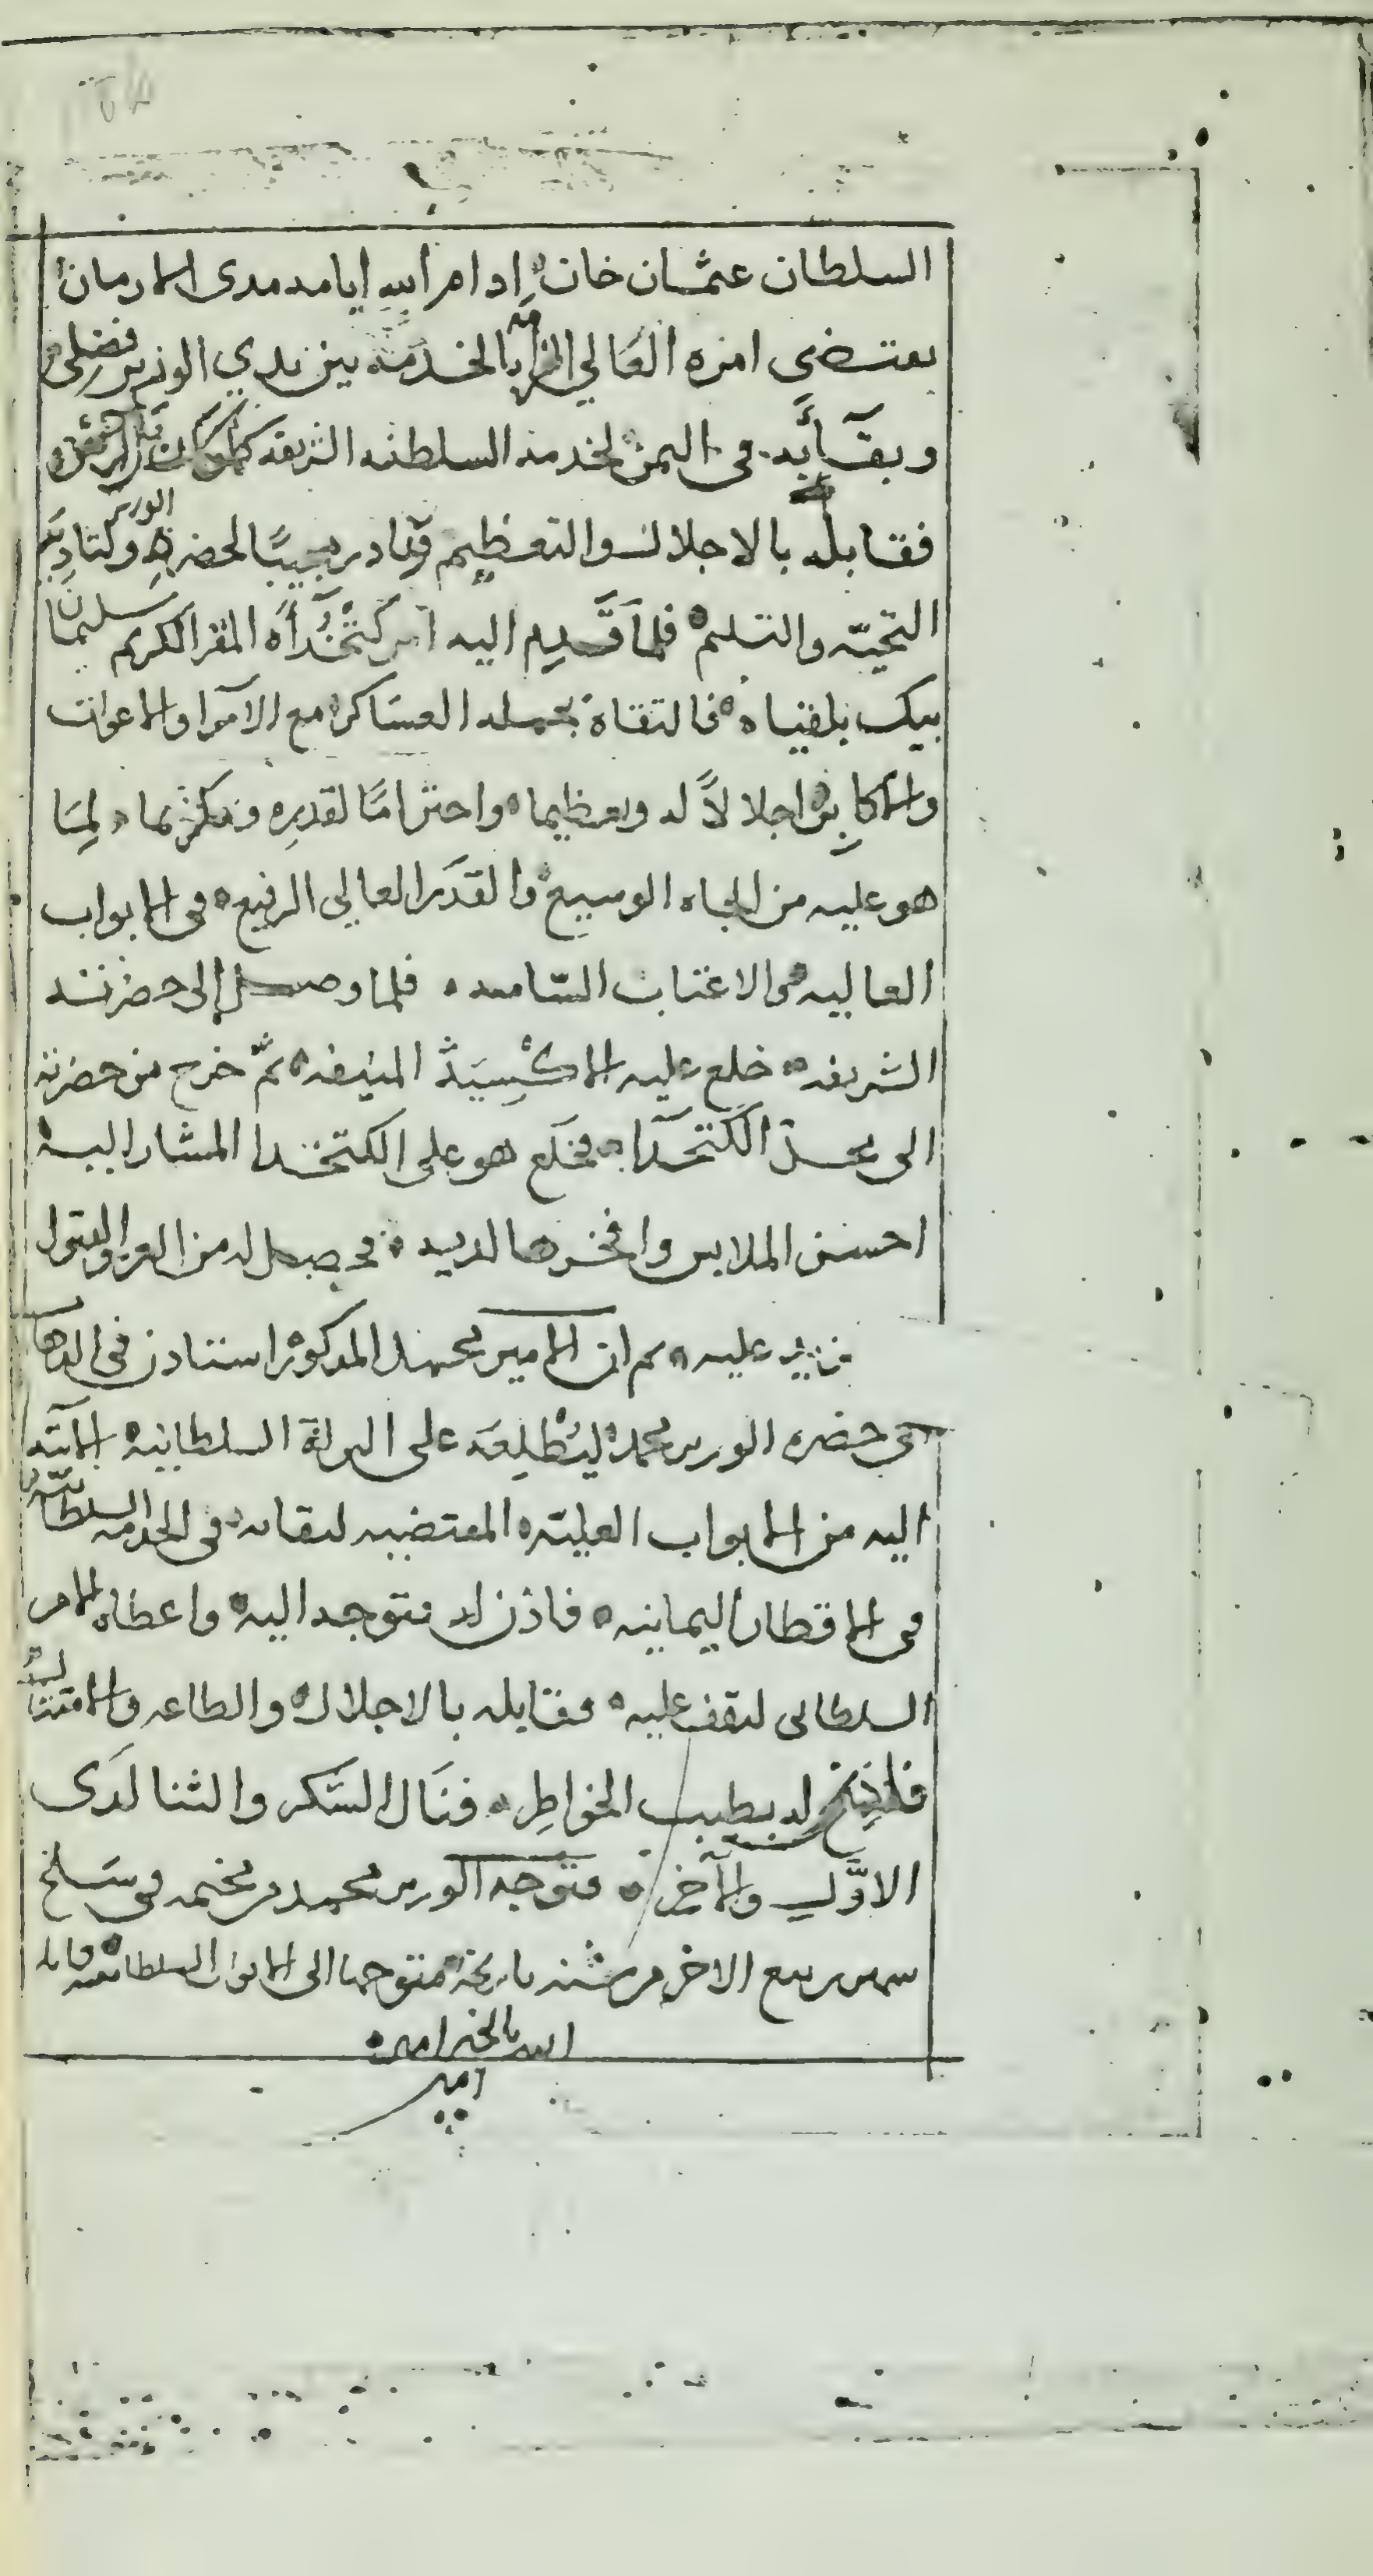 السلطان عثمان خان ادام الله ايامه مدى الازمان
بمقتضى امره العالي بالخدمة بين يدي الوزير فضلي
وبقائه في اليمن لخدمة السلطنه الشريفه كما كان
فقابله بالاجلال والتعظيم وبادر مجيبًا لحضرة الوزير
التحيّه والتسليم فلما قدم اليه امر كتخداه المقر الكريم سليمان
بيك بلقياه فالتقاه بجمله العساكر مع الامرا والاعوان
والاكابر اجلالاً له وتعظيما واحترامًا لقدره وتكريما لِمَا
هو عليه من الجاه الوسيع والقدر العالي الرفيع في الابواب
العاليه والاعتاب السّاميه فلما وصل إلى حضرته
الشريفه خلع عليه الاكسية المنيفه ثم خرج من حضرته
الى محل الكتخدا فخلع هو على الكتخدا المشار اليه
احسن الملابس وافخرها لديه فحصل له من العز والقبول
مزيد عليه ثم ان الامير محمد المذكور استاذن في الذهاب
الى حضره الوزير محمد ليُطْلِعَه على البراة السلطانيه الاتيه
اليه من الابواب العليّه المقتضيه لبقائه في الخدمه السلطانيه
في الاقطار اليمانيه فاذن له فتوجه اليه واعطاه الامر
السلطاني ليقف عليه فقابله بالاجلال والطاعه والامتثال
له بطيب الخواطر فنال الشكر والثنا لَدَى
الاوّل والآخر فتوجه الوزير محمد من مخيمه في سلخ
شهر ربيع الاخر من سنه تاريخه متوجها الى الابواب السلطانيه
الله بالخير امين
امين